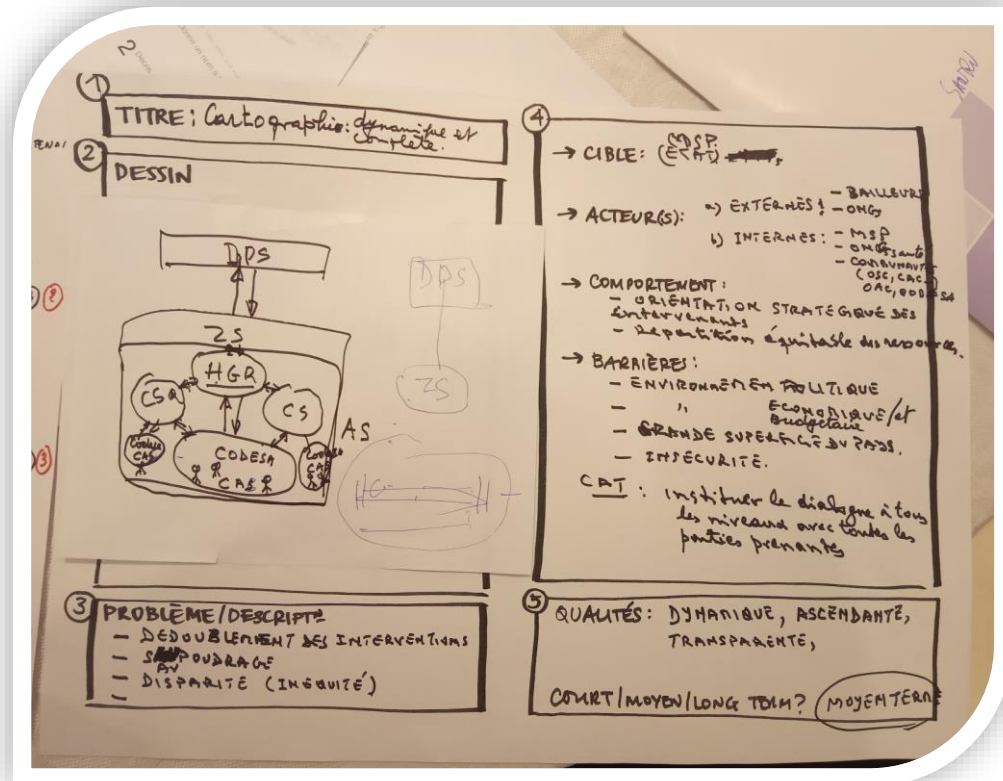 ①
TITRE: Cartographie: dynamique et
complète.
②
DESSIN
DPS
ZS
HGR
CSR
CS
AS
Codesa
CAC
CODESA
CAC
Codesa
CAC
DPS
ZS
③
PROBLÈME/DESCRIPT°
- DEDOUBLEMENT DES INTERVENTIONS
- SAUPOUDRAGE
- DISPARITÉ (INEQUITÉ)
-
④
→ CIBLE: (ETAT) MSP
→ ACTEUR(S): a) EXTERNES: - BAILLEURS
- ONGs
b) INTERNES: - MSP
- ONGs santé
- COMMUNAUTÉ
(OSC, CAC,
OAC, CODESA
→ COMPORTEMENT:
- ORIENTATION STRATÉGIQUE DES
intervenants
- Répartition équitable des ressources.
→ BARRIÈRES:
- ENVIRONNEMEN POLITIQUE
- " ECONOMIQUE/et
Budgétaire
- GRANDE SUPERFICIE DU PAYS.
- INSÉCURITÉ.
CAT: instituer le dialogue à tous
les niveaux avec toutes les
parties prenantes
⑤
QUALITÉS: DYNAMIQUE, ASCENDANTE,
TRANSPARENTE,
COURT/MOYEN/LONG TERM? MOYEN TERME